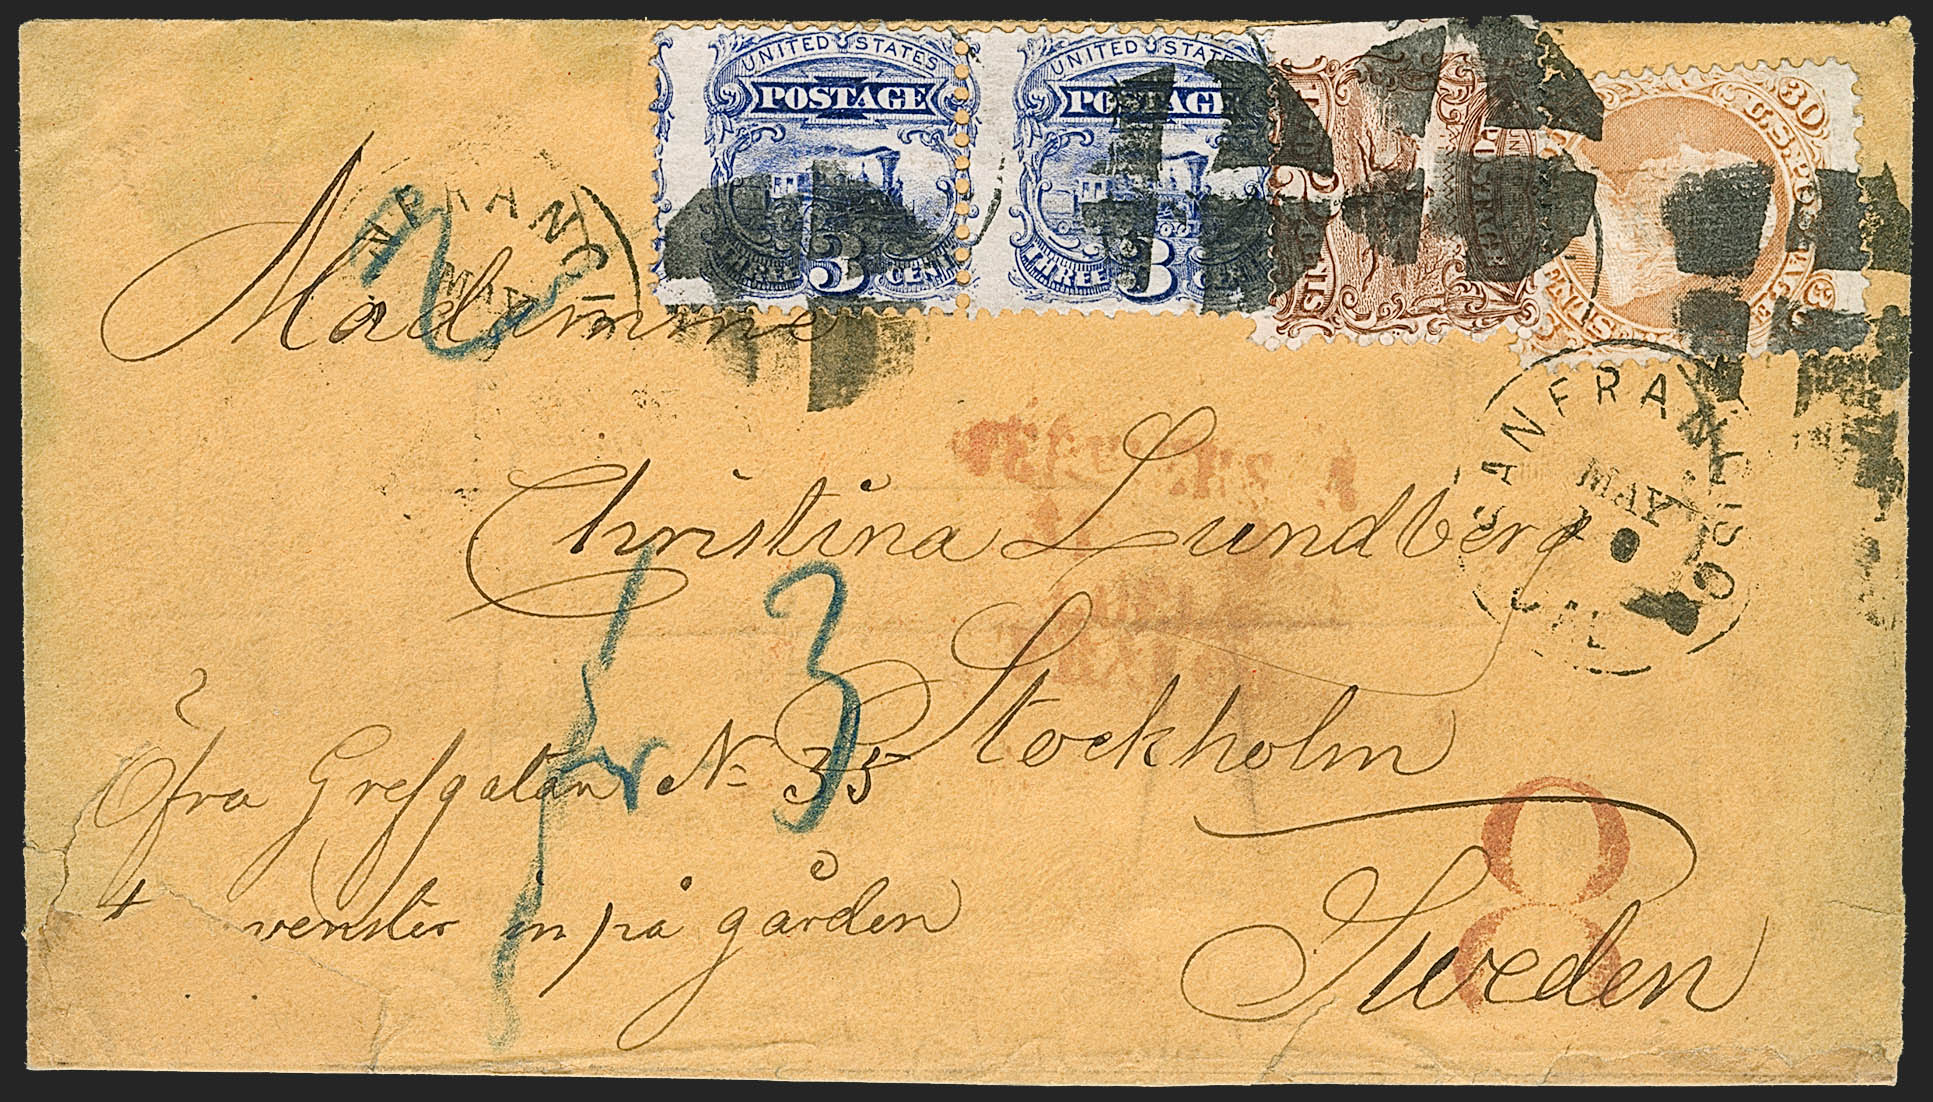 UNITED STATES
POSTAGE
THREE 3 CENTS
UNITED STATES
POSTAGE
THREE 3 CE
30
U.S. POSTAGE
SAN FRANCISCO
MAY
CAL
N FRANC
MAY
Madamme
Christina Lundberg
Stockholm
Öfra Grefgatan No 35
4 venster in på gården
Sweden
3
8